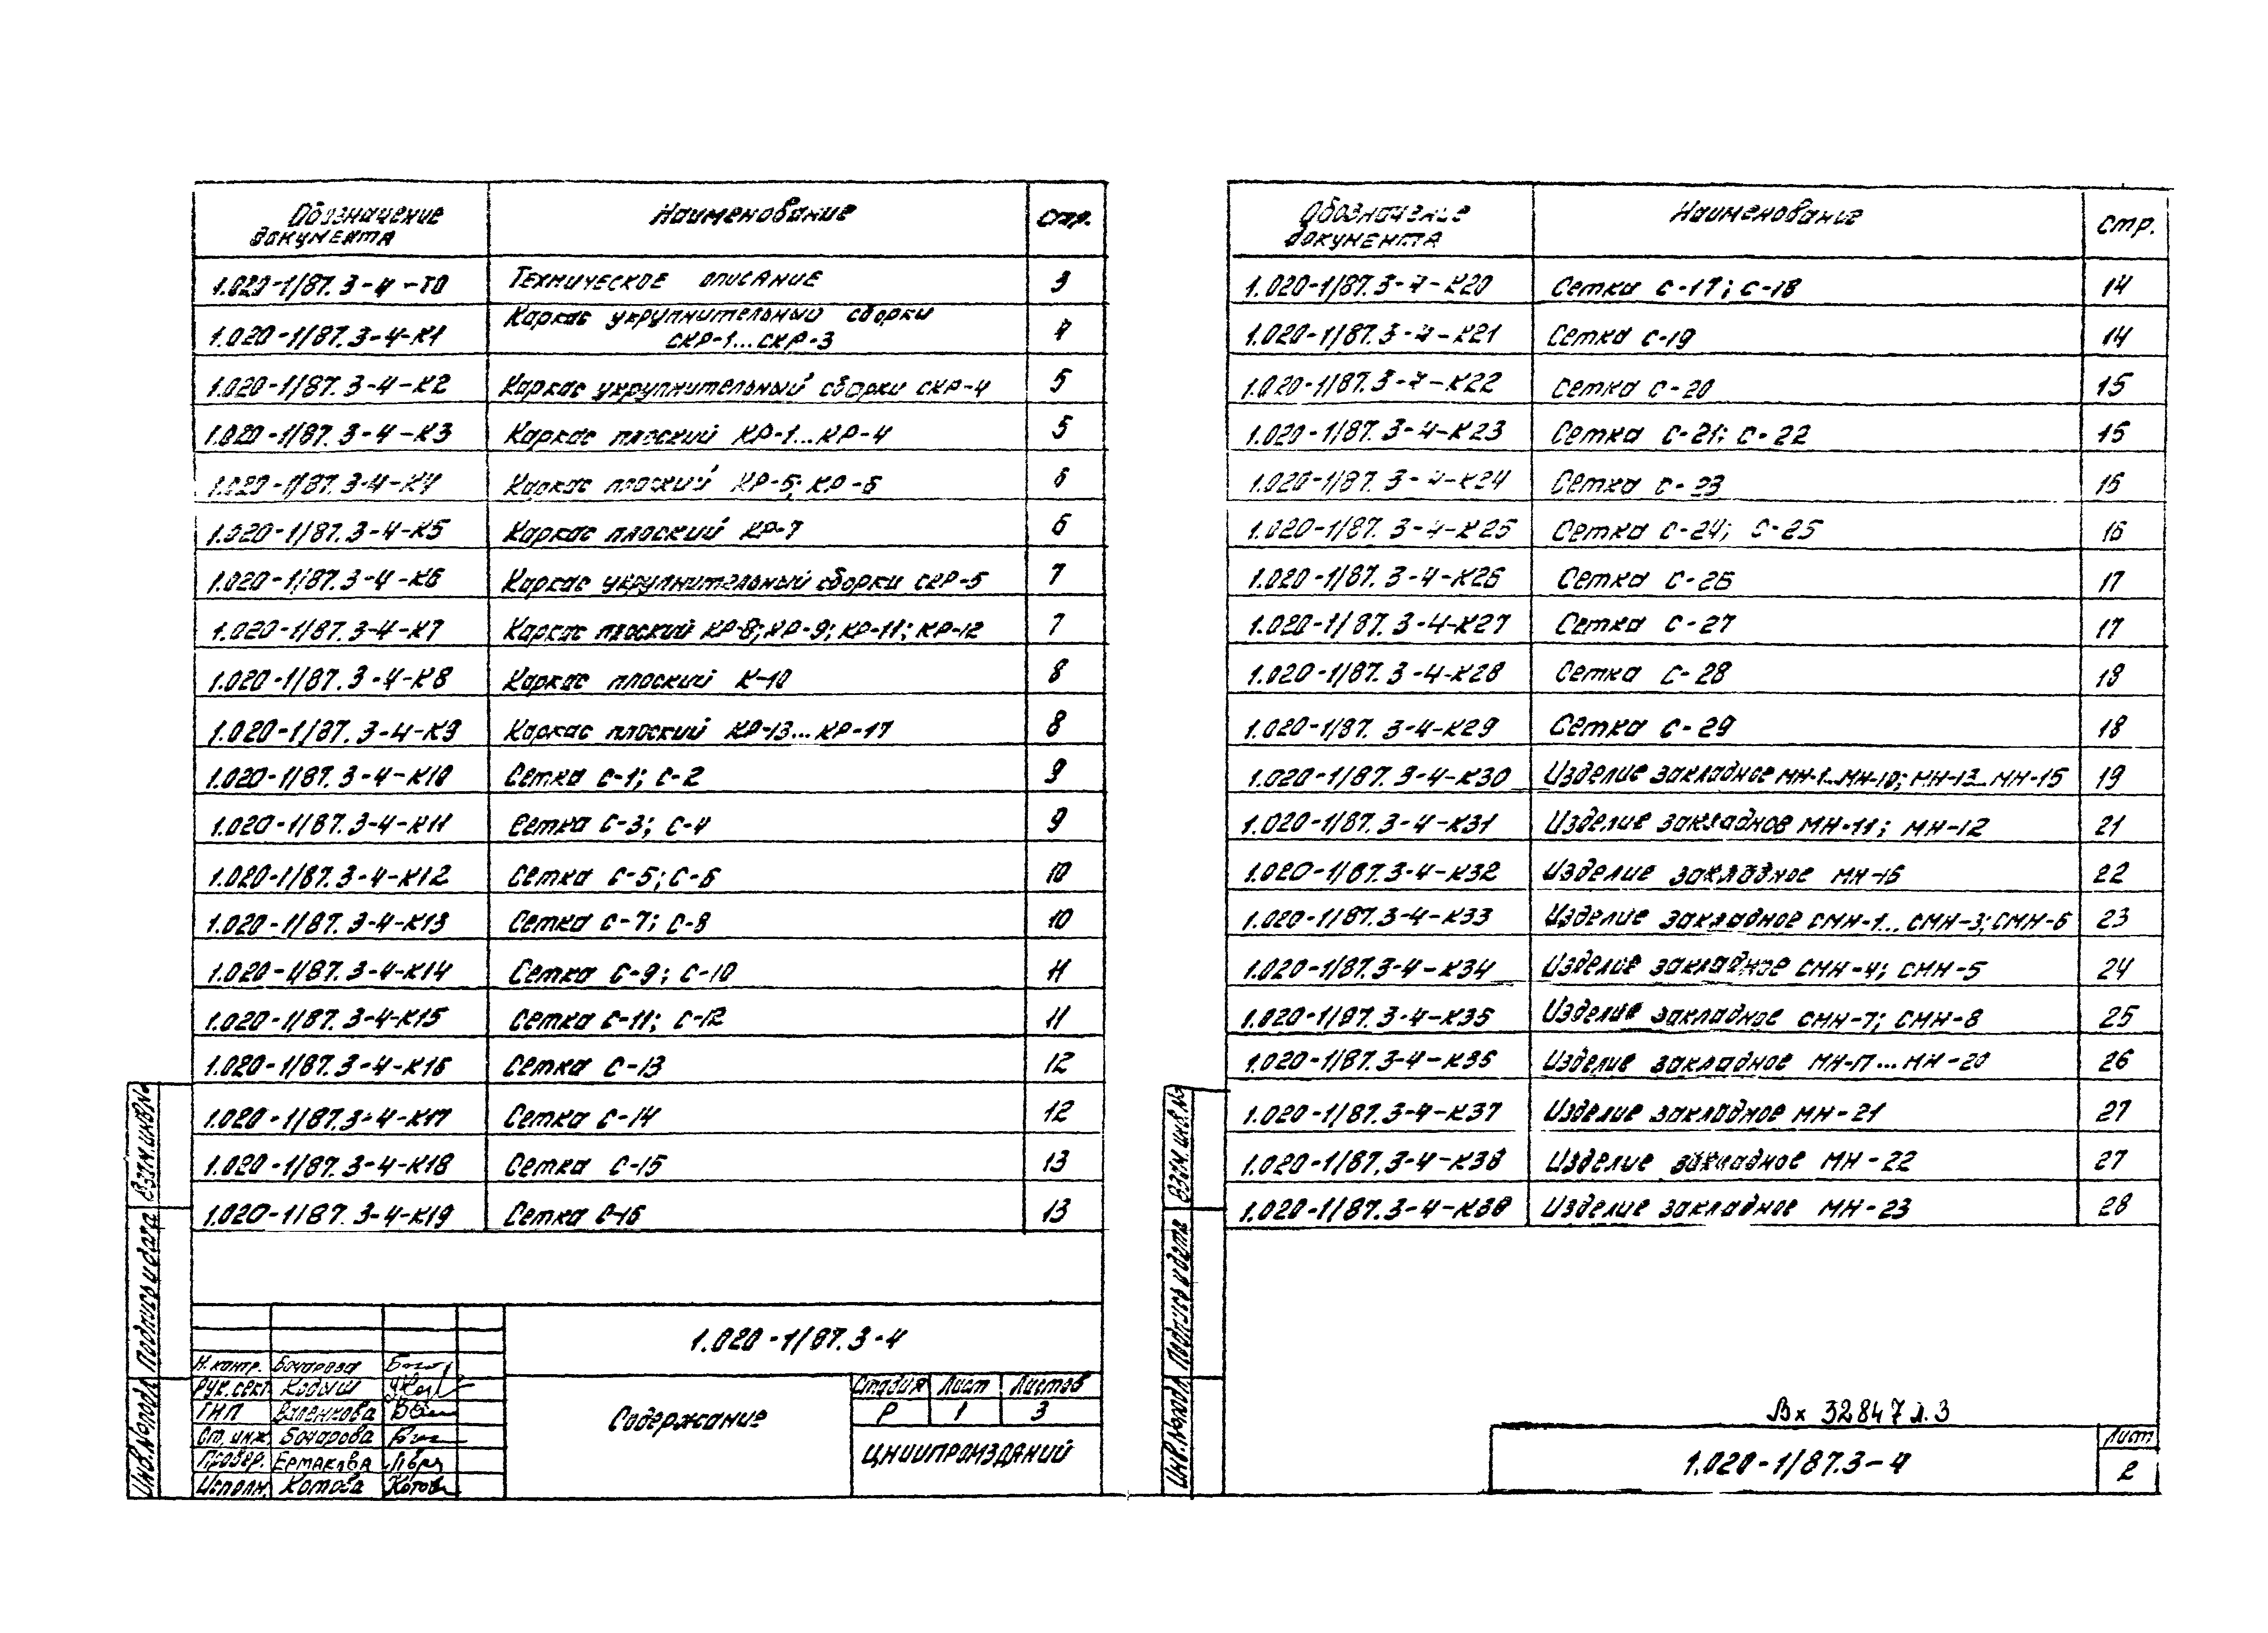 Обозначение документа Наименование Стр.
1.020-1/87.3-4-ТО Техническое описание 3
1.020-1/87.3-4-К1 Каркас укрупнительный сборки СКР-1...СКР-3 4
1.020-1/87.3-4-К2 Каркас укрупнительный сборки СКР-4 5
1.020-1/87.3-4-К3 Каркас плоский КР-1...КР-4 5
1.020-1/87.3-4-К4 Каркас плоский КР-5; КР-6 6
1.020-1/87.3-4-К5 Каркас плоский КР-7 6
1.020-1/87.3-4-К6 Каркас укрупнительный сборки СКР-5 7
1.020-1/87.3-4-К7 Каркас плоский КР-8; КР-9; КР-11; КР-12 7
1.020-1/87.3-4-К8 Каркас плоский К-10 8
1.020-1/87.3-4-К9 Каркас плоский КР-13...КР-17 8
1.020-1/87.3-4-К10 Сетка С-1; С-2 9
1.020-1/87.3-4-К11 Сетка С-3; С-4 9
1.020-1/87.3-4-К12 Сетка С-5; С-6 10
1.020-1/87.3-4-К13 Сетка С-7; С-8 10
1.020-1/87.3-4-К14 Сетка С-9; С-10 11
1.020-1/87.3-4-К15 Сетка С-11; С-12 11
1.020-1/87.3-4-К16 Сетка С-13 12
1.020-1/87.3-4-К17 Сетка С-14 12
1.020-1/87.3-4-К18 Сетка С-15 13
1.020-1/87.3-4-К19 Сетка С-16 13
Взам.инв.№
Подпись и дата
Инв.№подл.
1.020-1/87.3-4
Н.контр. Бочарова
Рук.сект. Кодыш
ГНП Валенкова
Ст.инж. Бочарова
Провер. Ермакова
Исполн. Котова
Содержание
Стадия Лист Листов
Р 1 3
ЦНИИПРОМЗДАНИЙ
Обозначение документа Наименование Стр.
1.020-1/87.3-4-К20 Сетка С-17; С-18 14
1.020-1/87.3-4-К21 Сетка С-19 14
1.020-1/87.3-4-К22 Сетка С-20 15
1.020-1/87.3-4-К23 Сетка С-21; С-22 15
1.020-1/87.3-4-К24 Сетка С-23 16
1.020-1/87.3-4-К25 Сетка С-24; С-25 16
1.020-1/87.3-4-К26 Сетка С-26 17
1.020-1/87.3-4-К27 Сетка С-27 17
1.020-1/87.3-4-К28 Сетка С-28 18
1.020-1/87.3-4-К29 Сетка С-29 18
1.020-1/87.3-4-К30 Изделие закладное МН-1...МН-10; МН-13...МН-15 19
1.020-1/87.3-4-К31 Изделие закладное МН-11; МН-12 21
1.020-1/87.3-4-К32 Изделие закладное МН-16 22
1.020-1/87.3-4-К33 Изделие закладное СМН-1...СМН-3; СМН-6 23
1.020-1/87.3-4-К34 Изделие закладное СМН-4; СМН-5 24
1.020-1/87.3-4-К35 Изделие закладное СМН-7; СМН-8 25
1.020-1/87.3-4-К36 Изделие закладное МН-17...МН-20 26
1.020-1/87.3-4-К37 Изделие закладное МН-21 27
1.020-1/87.3-4-К38 Изделие закладное МН-22 27
1.020-1/87.3-4-К39 Изделие закладное МН-23 28
Взам.инв.№
Подпись и дата
Инв.№подл.
Вх 32847 л.3
1.020-1/87.3-4
Лист
2